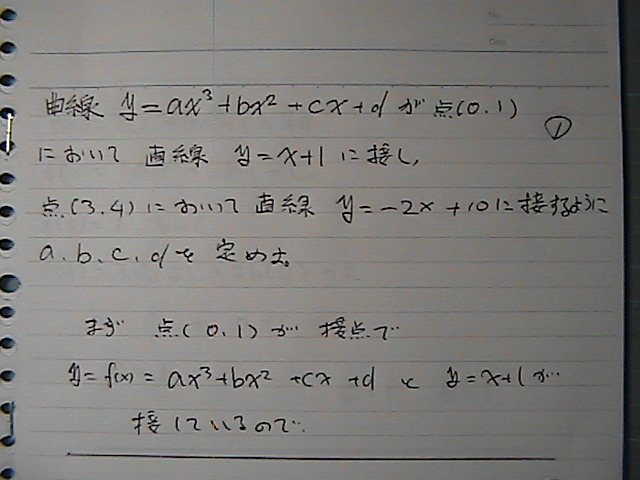 曲線 y=ax³+bx²+cx+d が 点(0.1)
①
において 直線 y=x+1 に接し,
点(3.4)において直線 y=-2x+10に接するように
a.b.c.dを定めよ。
まず 点(0.1)が 接点で
y=f(x)=ax³+bx²+cx+d と y=x+1が
接しているので.